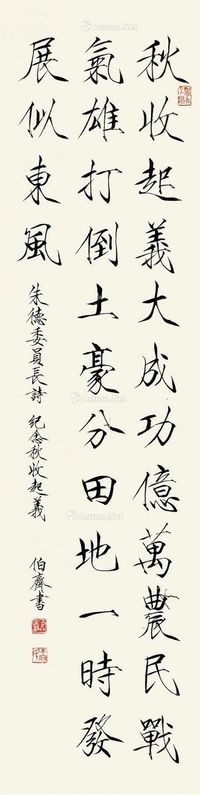 秋收起義大成功億萬農民戰
氣雄打倒土豪分田地一時發
展似東風
朱德委員長詩 紀念秋收起義
伯齋書